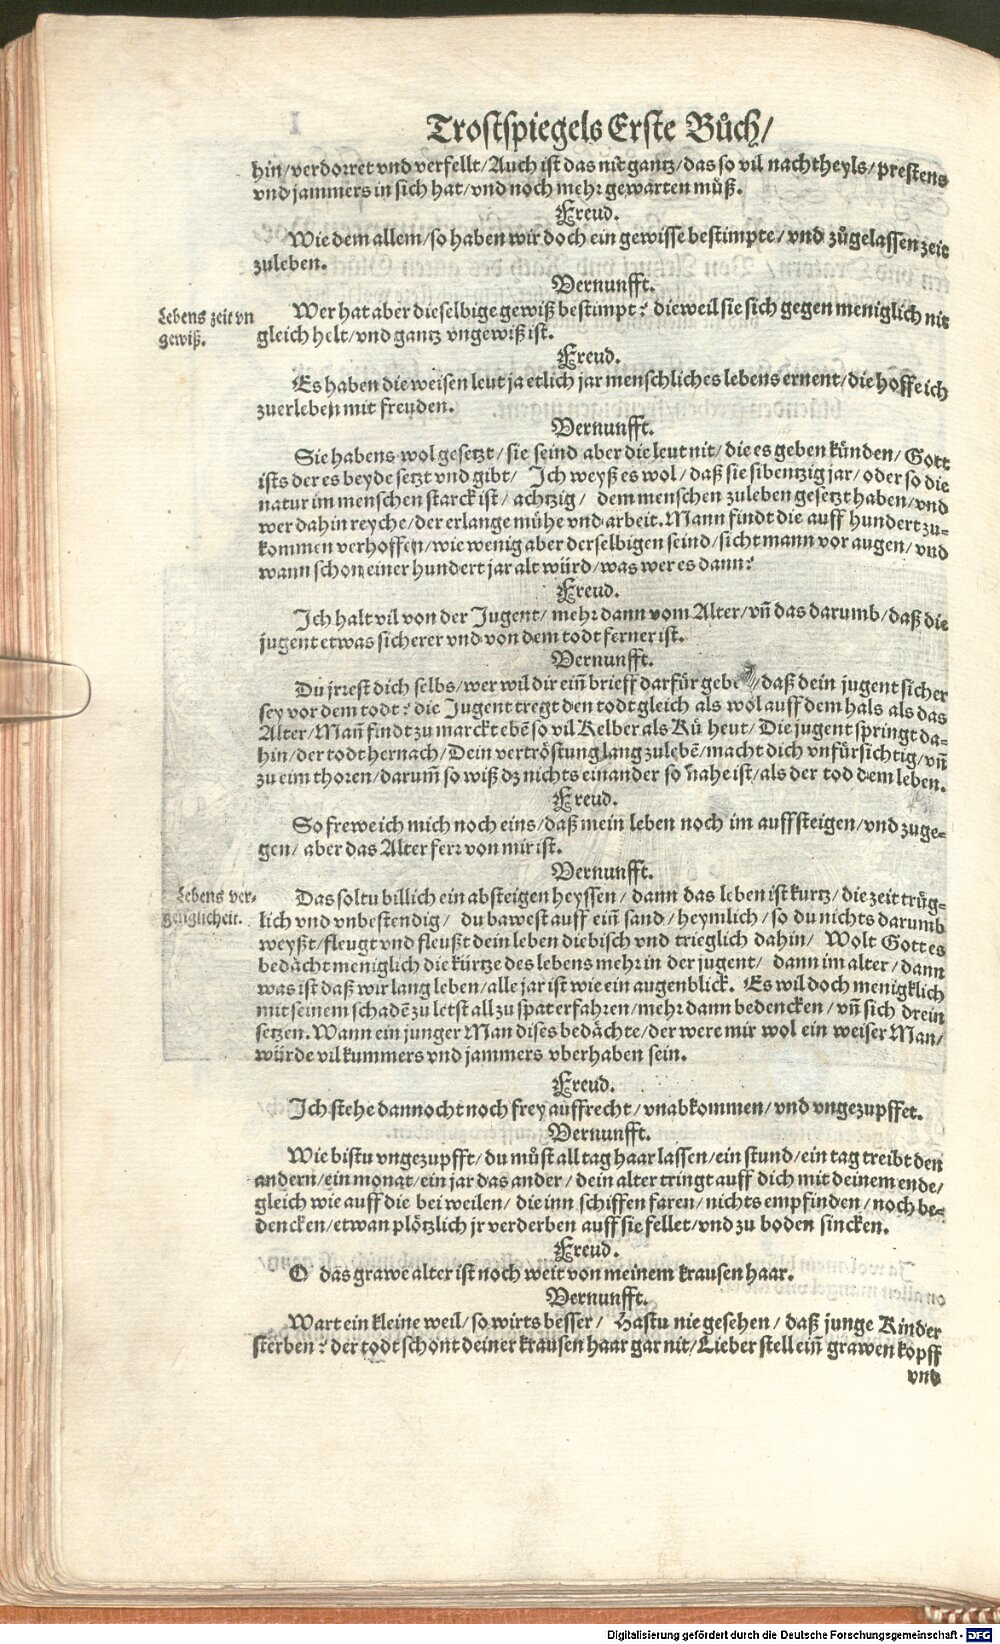 Trostspiegels Erste Bůch/
hin/verdorret vnd verfellt/Auch ist das nit gantz/das so vil nachtheyls/prestens
vnd jammers in sich hat/vnd noch mehr gewarten můß.
Freud.
Wie dem allem/so haben wir doch ein gewisse bestimpte/vnd zůgelassen zeit
zuleben.
Vernunfft.
Lebens zeit vn
gewiß.
Wer hat aber dieselbige gewiß bestimpt? dieweil sie sich gegen meniglich nit
gleich helt/vnd gantz vngewiß ist.
Freud.
Es haben die weisen leut ja etlich jar menschliches lebens ernent/die hoffe ich
zuerleben mit freyden.
Vernunfft.
Sie habens wol gesetzt/sie seind aber die leut nit/die es geben künden/Gott
ists der es beyde setzt vnd gibt/ Ich weyß es wol/daß sie sibentzig jar/oder so die
natur im menschen starck ist/achtzig/ dem menschen zuleben gesetzt haben/vnd
wer dahin reyche/der erlange mühe vnd arbeit. Mann findt die auff hundert zu-
kommen verhoffen/wie wenig aber derselbigen seind/sicht mann vor augen/vnd
wann schon einer hundert jar alt würd/was wer es dann?
Freud.
Ich halt vil von der Jugent/mehr dann vom Alter/vñ das darumb/daß die
jugent etwas sicherer vnd von dem todt ferner ist.
Vernunfft.
Du jrrest dich selbs/wer wil dir eiñ brieff darfür gebe /daß dein jugent sicher
sey vor dem todt? die Jugent tregt den todt gleich als wol auff dem hals als das
Alter/Mañ findt zu marckt ebẽ so vil Kelber als Kü heut/Die jugent springt da-
hin/der todt hernach/Dein vertröstung lang zulebẽ/macht dich vnfürsichtig/vñ
zu eim thoren/darum̃ so wiß dz nichts einander so nahe ist/als der tod dem leben.
Freud.
So frewe ich mich noch eins/daß mein leben noch im auffsteigen/vnd zuge-
gen/aber das Alter ferr von mir ist.
Vernunfft.
Lebens ver-
gengligcheit.
Das soltu billich ein absteigen heyssen/dann das leben ist kurtz/die zeit trüg-
lich vnd vnbestendig/ du bawest auff eiñ sand/heymlich/so du nichts darumb
weyßt/fleugt vnd fleußt dein leben diebisch vnd trieglich dahin/ Wolt Gott es
bedächt meniglich die kürtze des lebens mehr in der jugent/ dann im alter/dann
was ist daß wir lang leben/alle jar ist wie ein augenblick. Es wil doch menigklich
mit seinem schadẽ zu letst all zu spat erfahren/mehr dann bedencken/vñ sich drein
setzen. Wann ein junger Man dises bedächte/der were mir wol ein weiser Man/
würde vil kummers vnd jammers vberhaben sein.
Freud.
Ich stehe dannocht noch frey auffrecht/vnabkommen/vnd vngezupffet.
Vernunfft.
Wie bistu vngezupfft/du můst all tag haar lassen/ein stund/ein tag treibt den
andern/ein monat/ein jar das ander/dein alter tringt auff dich mit deinem ende/
gleich wie auff die bei weilen/die inn schiffen faren/nichts empfinden/noch be-
dencken/etwan plötzlich jr verderben auff sie fellet/vnd zu boden sincken.
Freud.
O das grawe alter ist noch weit von meinem krausen haar.
Vernunfft.
Wart ein kleine weil/so wirts besser/ Hastu nie gesehen/daß junge Kinder
sterben? der todt schont deiner krausen haar gar nit/Lieber stell eiñ grawen kopff
vnd
Digitalisierung gefördert durch die Deutsche Forschungsgemeinschaft - DFG